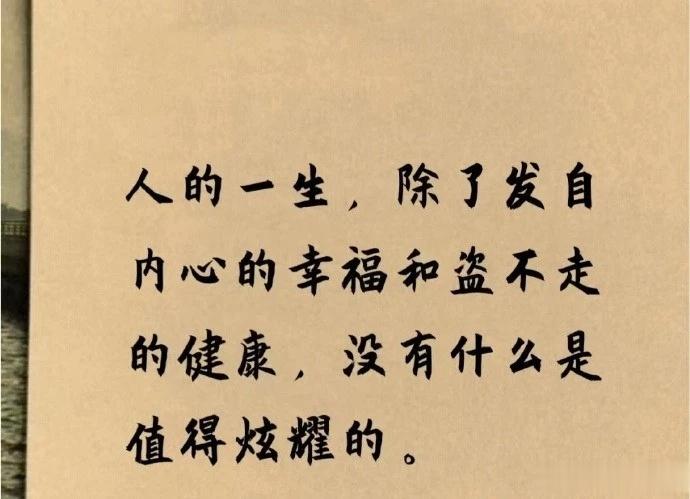 人的一生，除了发自
内心的幸福和盗不走
的健康，没有什么是
值得炫耀的。